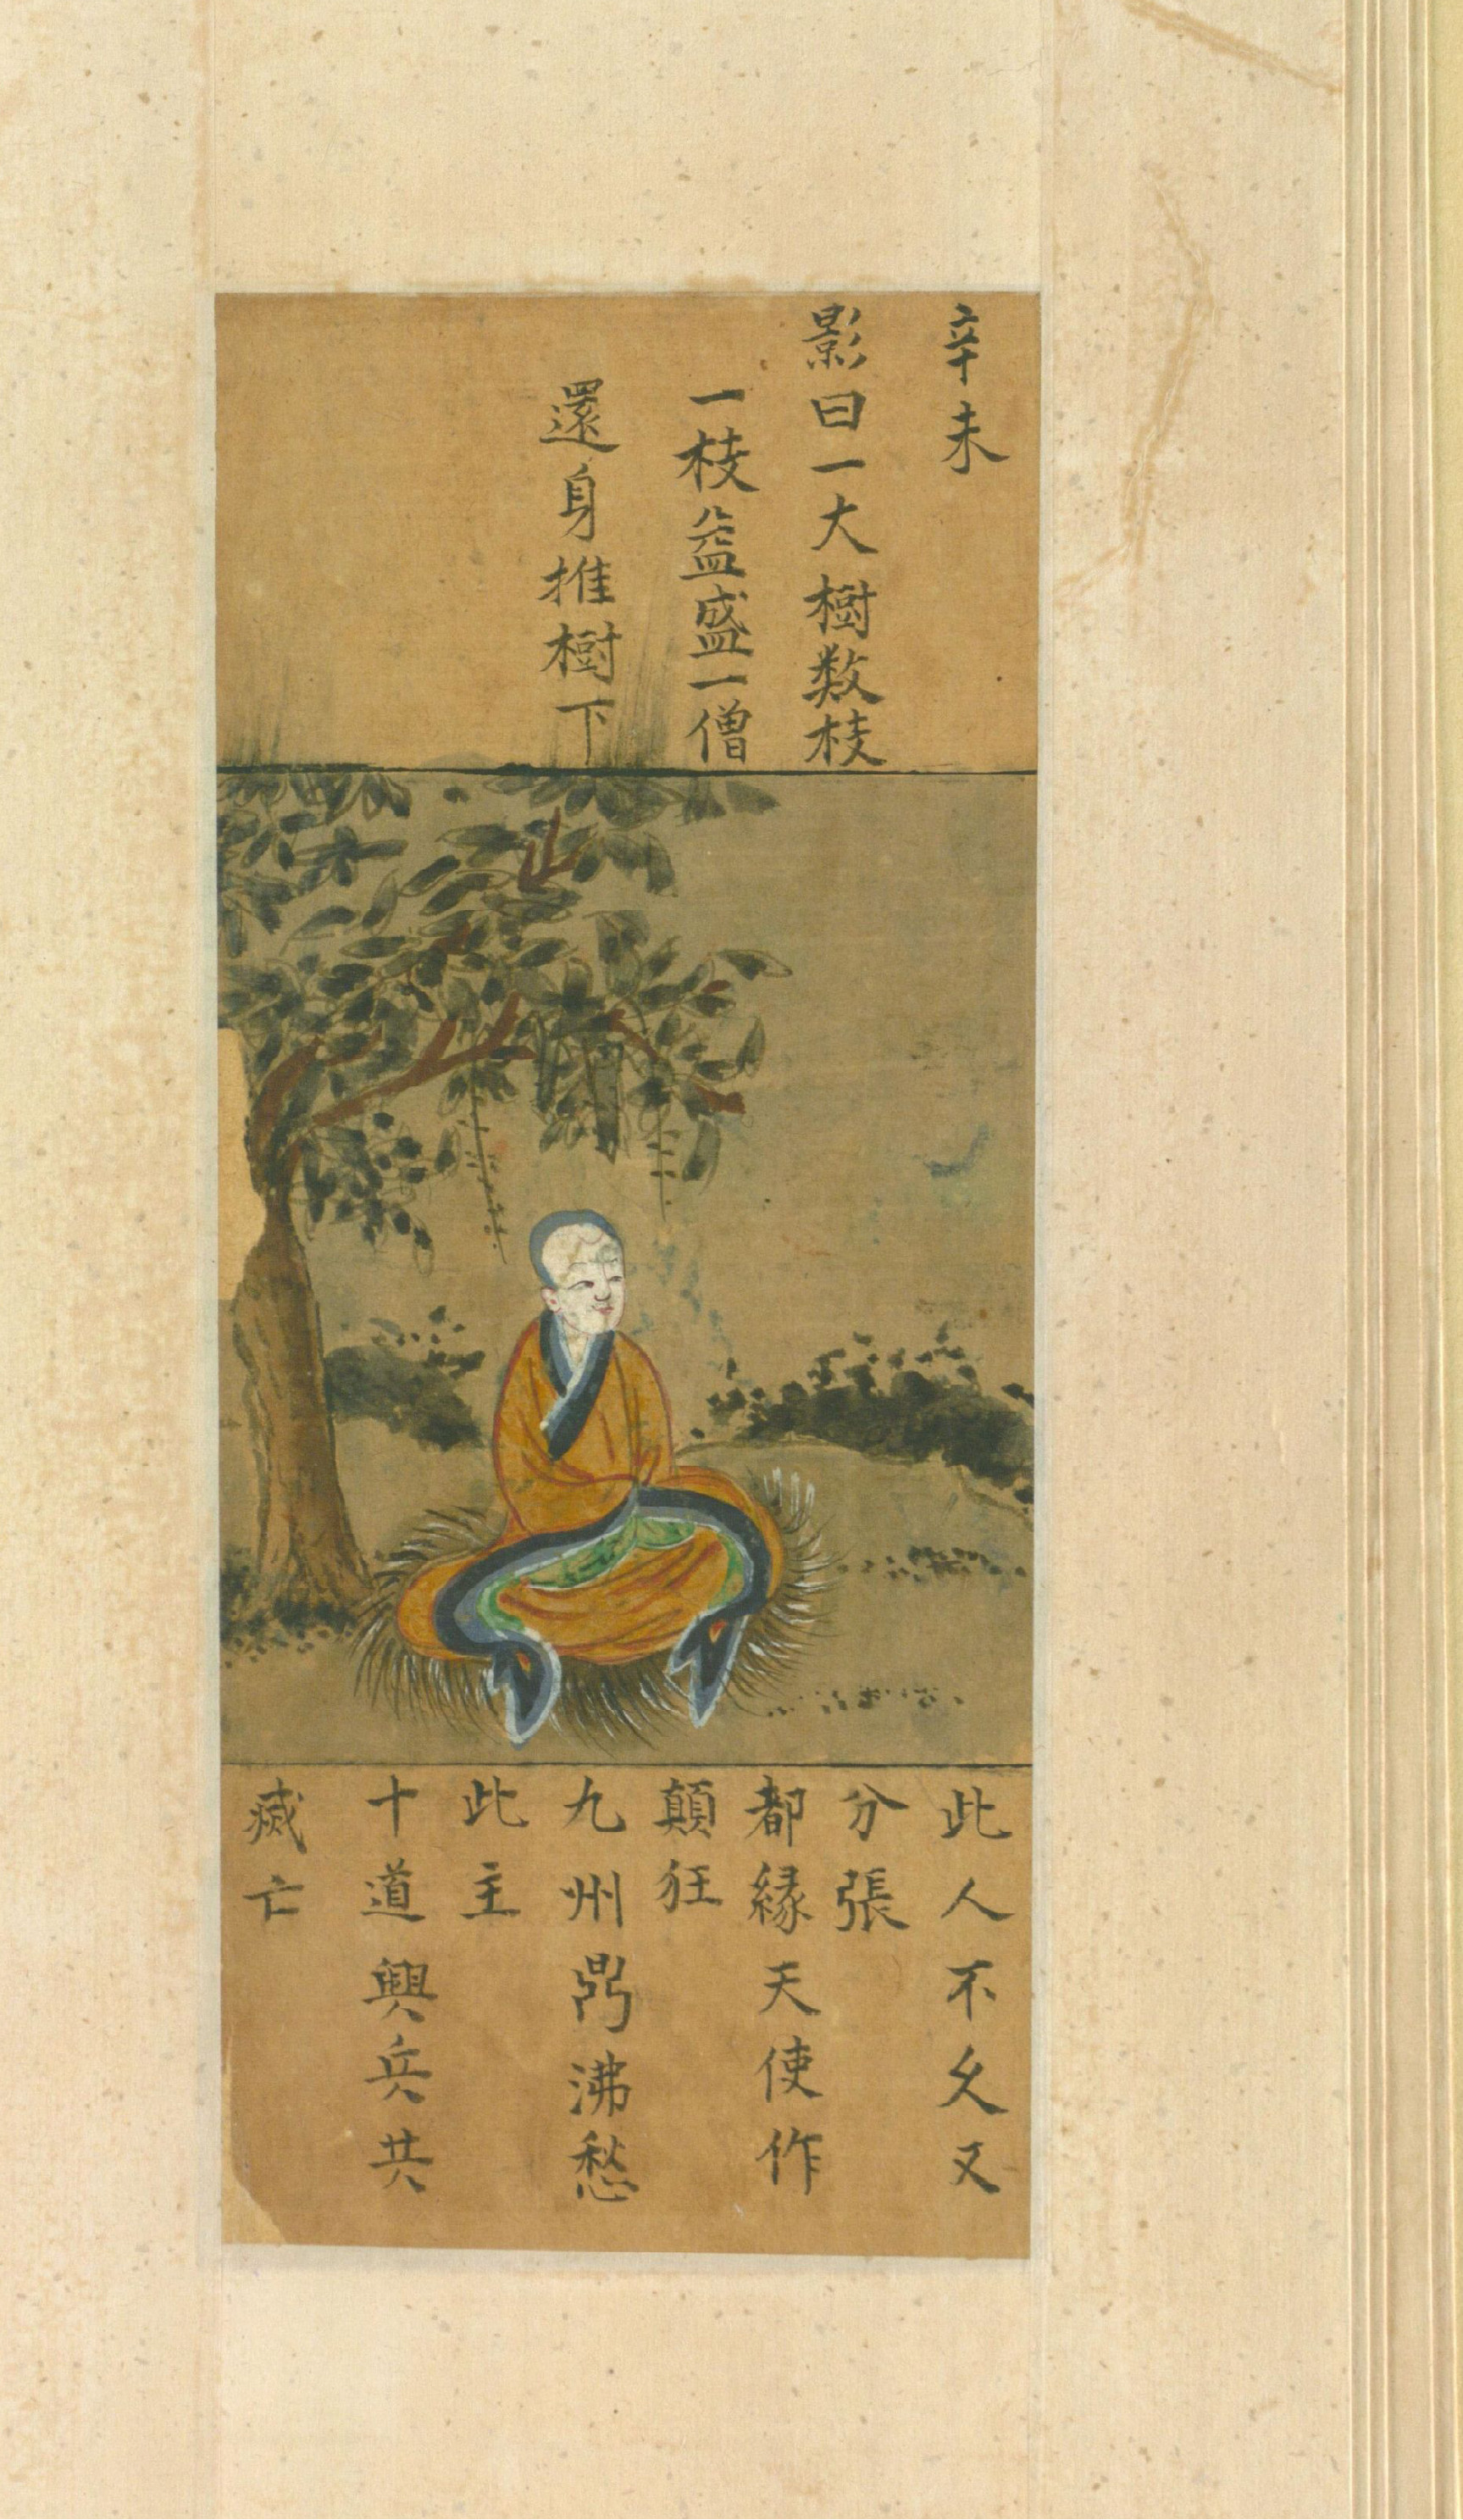 辛未
影曰一大樹数枝
一枝益盛一僧
還身推樹下
此人不久又
分張
都縁天使作
顛狂
九州鼎沸愁
此主
十道興兵共
滅亡